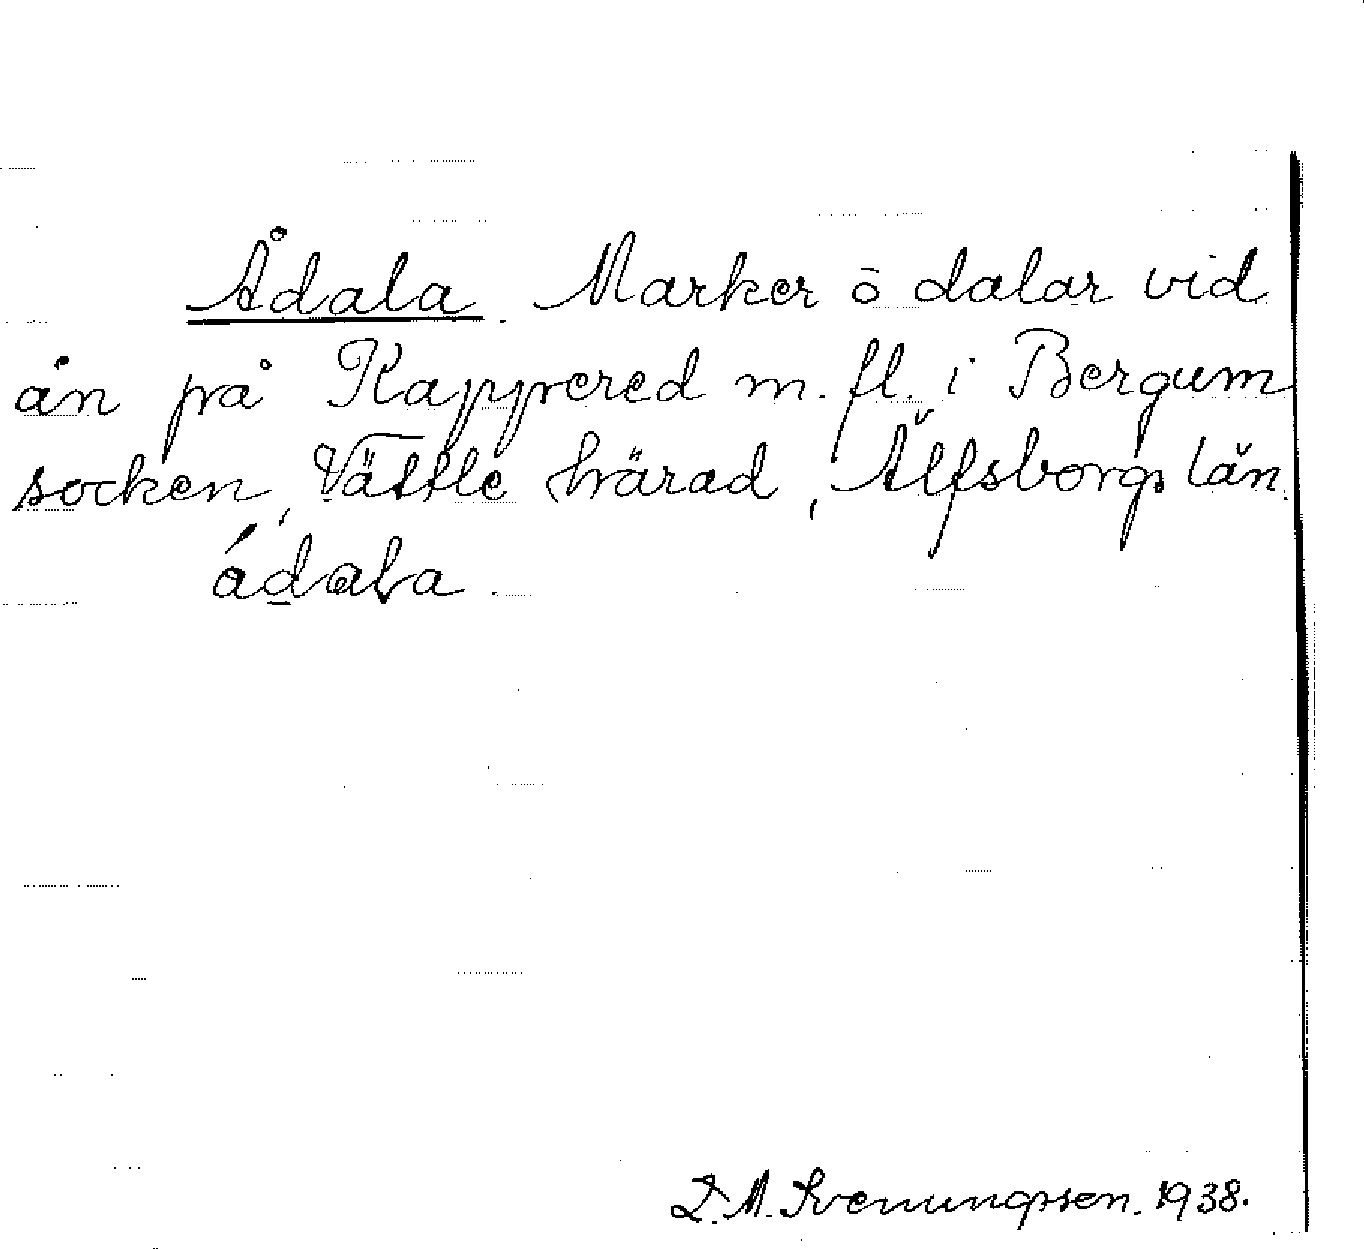 Ådala. Marker ō dalar vid
ån på Kappered m. fl. i Bergum
socken, Vättle härad, Älfsborgs län.
ádala.
D. M. Svenungsen. 1938.